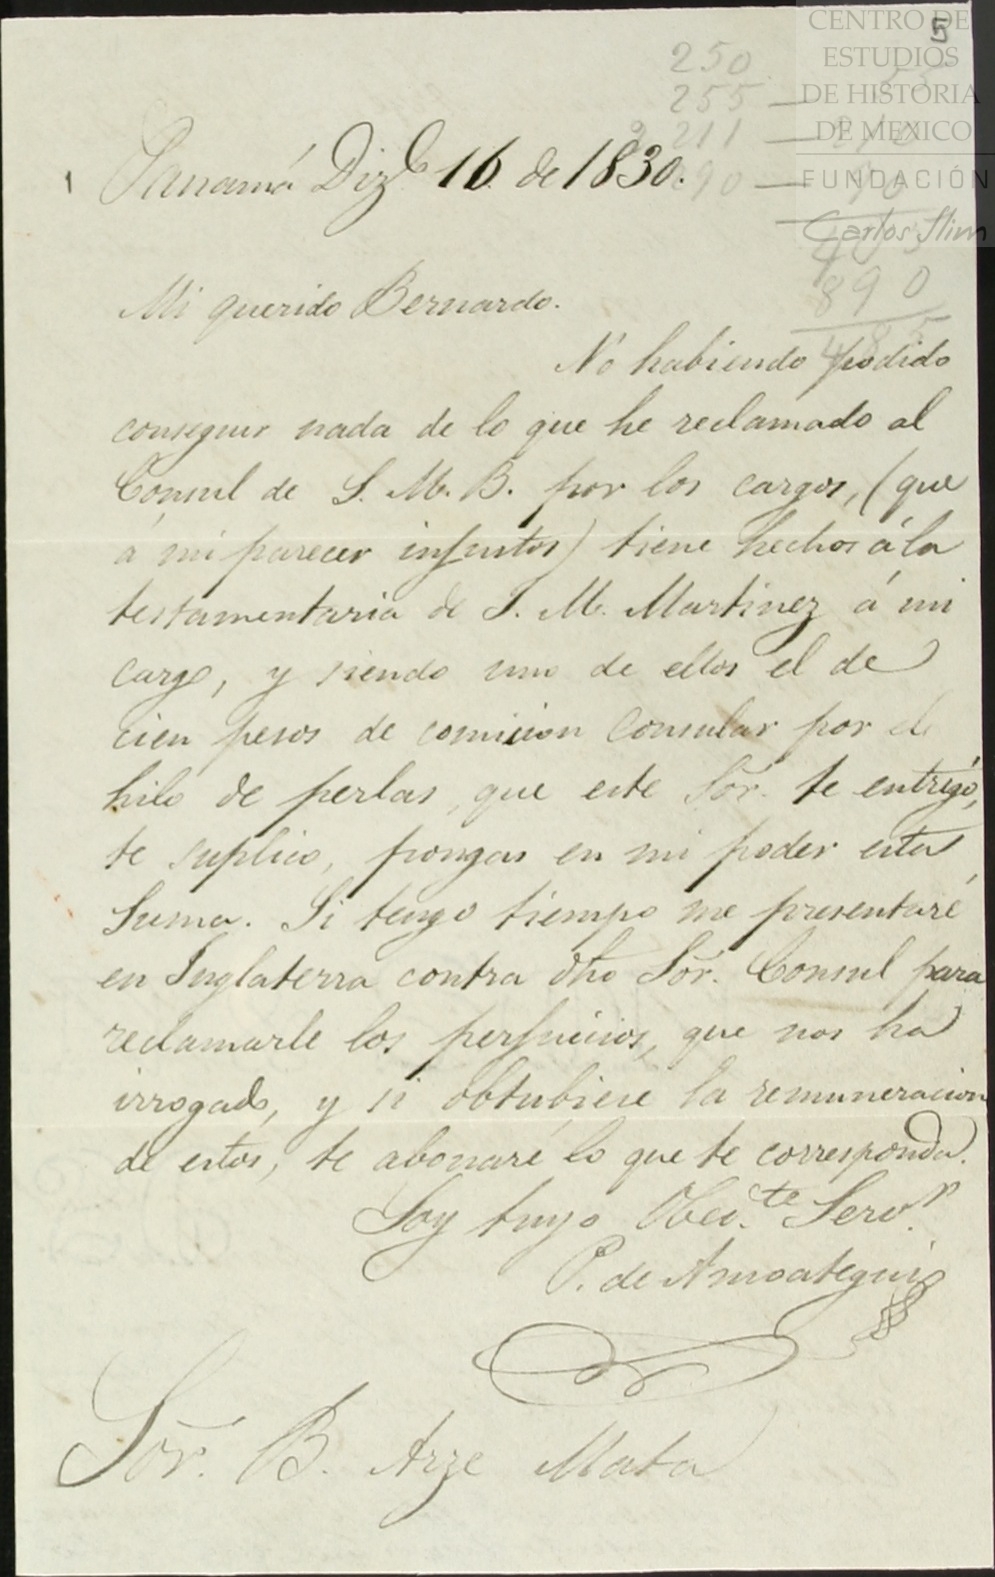 5
CENTRO DE
ESTUDIOS
DE HISTORIA
DE MEXICO
FUNDACIÓN
Carlos Slim
250
255
211
90
890
485
Panamá Dizb. 16. de 1830.
Mi querido Bernardo.
No habiendo podido
conseguir nada de lo que he reclamado al
Consul de S. M. B. por los cargos, (que
a mi parecer injustos) tiene hechos á la
testamentaria de J. M. Martinez á mi
cargo, y siendo uno de ellos el de
cien pesos de comision Consular por el
hilo de perlas, que este Sor. te entregó,
te suplico, pongas en mi poder esta
Suma. Si tengo tiempo me presentaré
en Inglaterra contra dho Sor. Consul para
reclamarle los perjuicios, que nos ha
irrogado, y si obtubiese la remuneracion
de estos, te abonaré lo que te corresponda.
Soy tuyo Obed.te Serv.r
P. de Amoategui
Sor. B. Arze Mata